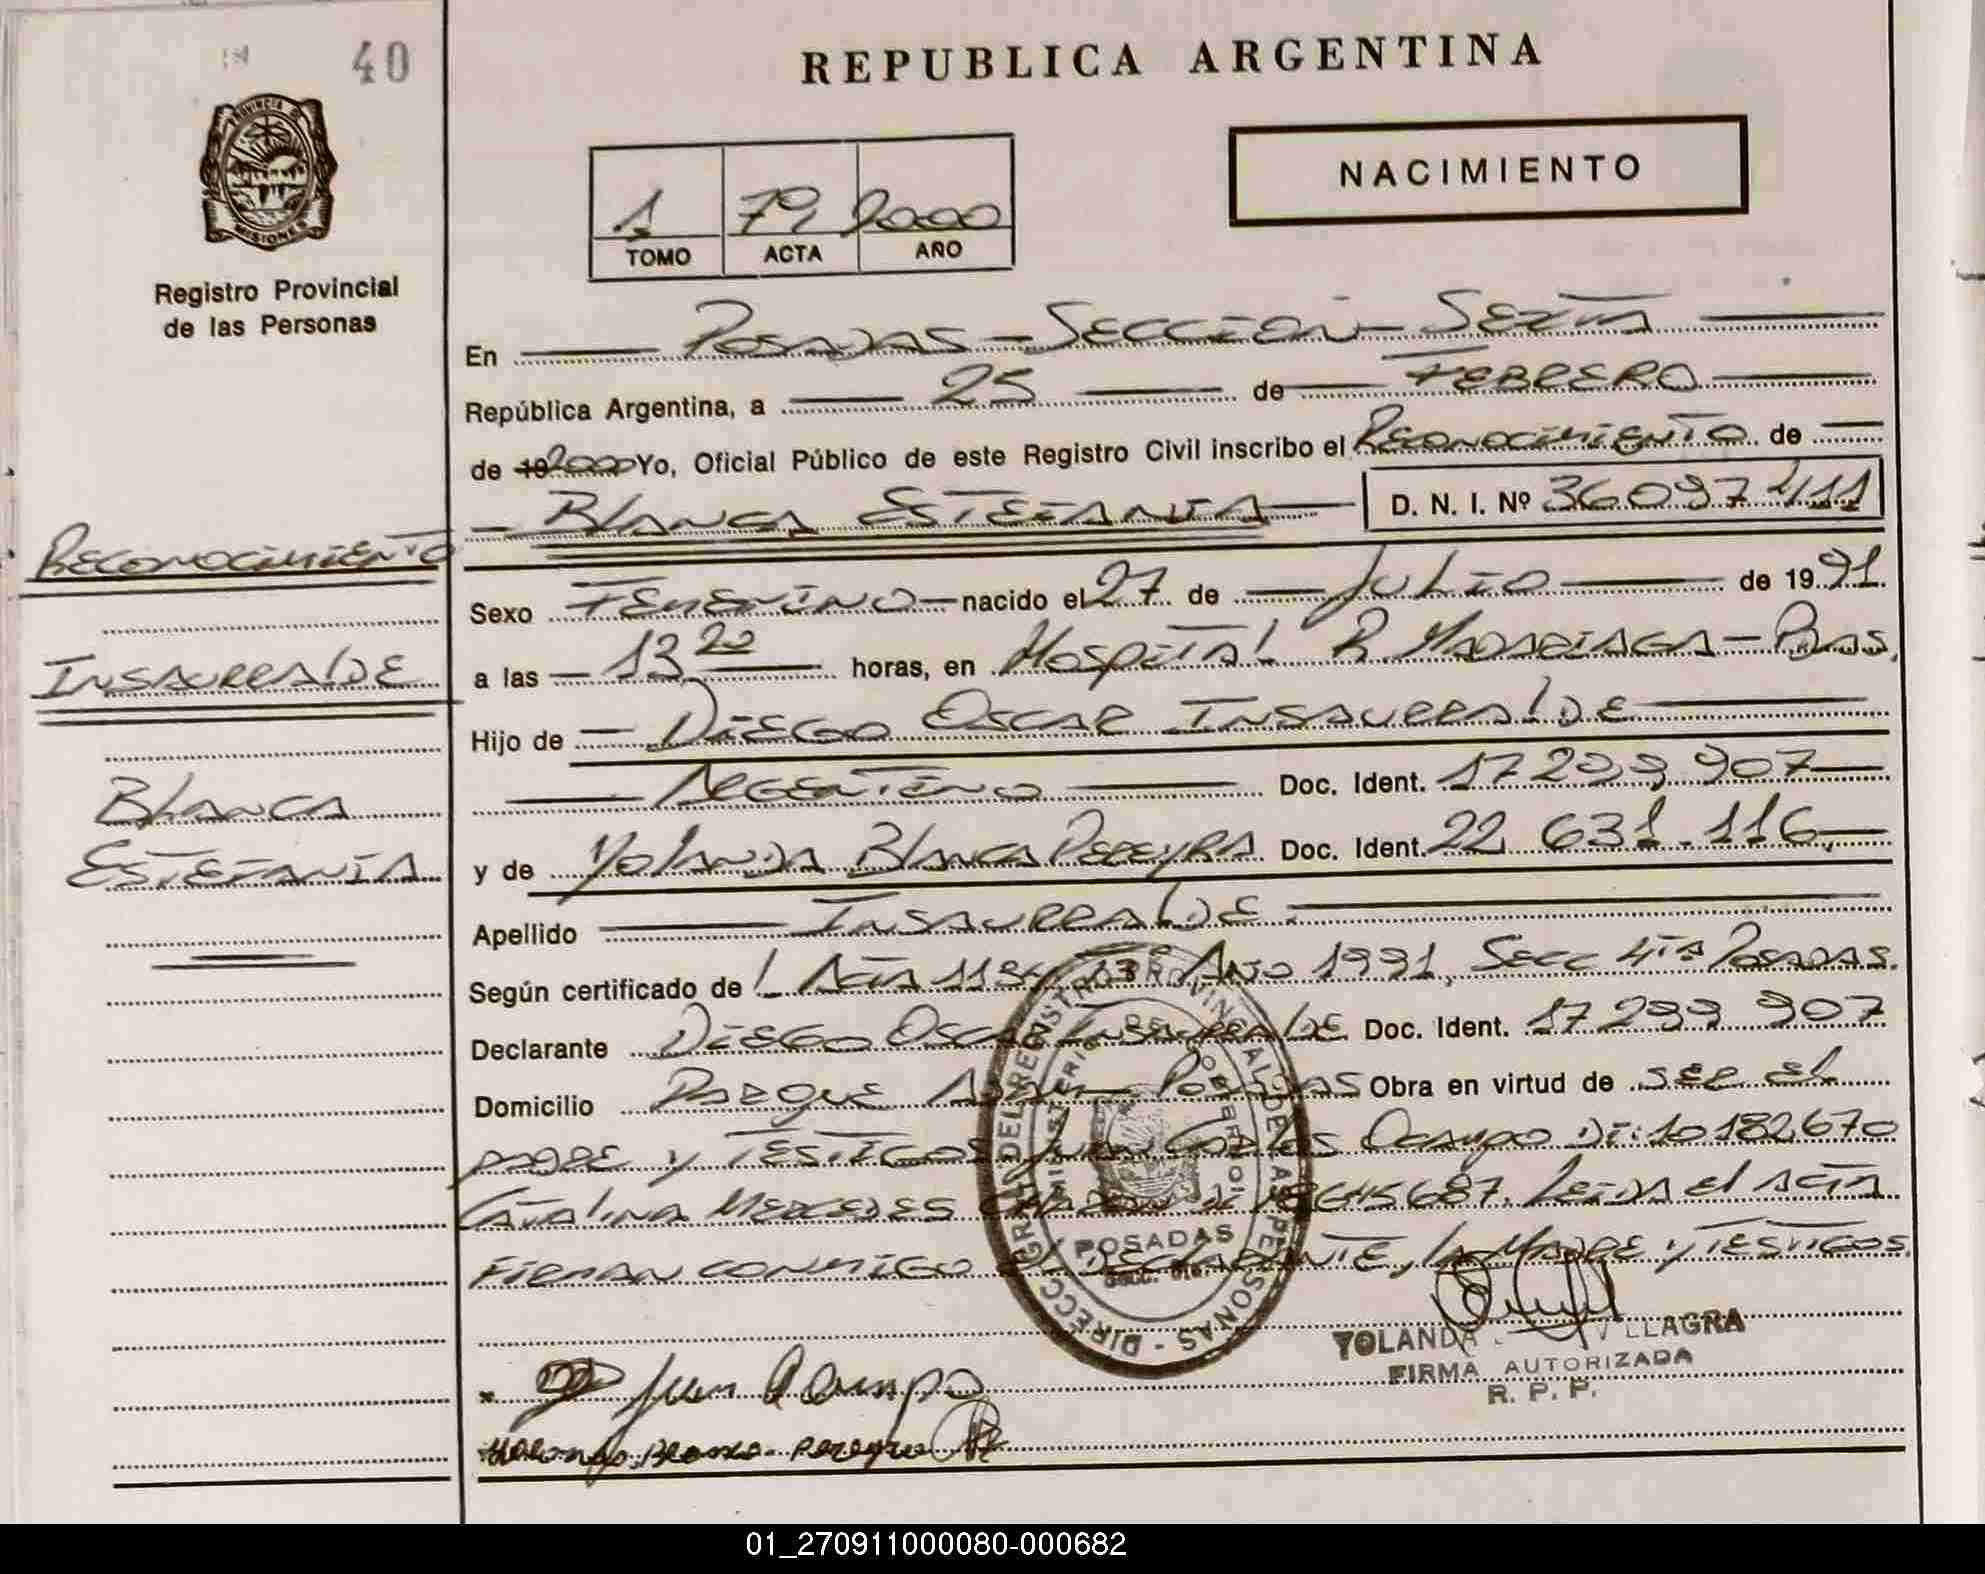 40
REPUBLICA ARGENTINA
NACIMIENTO
1 79 2000
TOMO ACTA AÑO
PROVINCIA DE MISIONES
Registro Provincial
de las Personas
En Posadas - Sección Sexta
República Argentina, a 25 de Febrero
de 19 2000 Yo, Oficial Público de este Registro Civil inscribo el Reconocimiento de
Blanca Estefanía D. N. I. Nº 36.097.411
Reconocimiento
Insaurralde
Blanca
Estefanía
Sexo Femenino nacido el 27 de Julio de 1991.
a las 13 20 horas, en Hospital R. Madariaga - Pdas.
Hijo de Diego Oscar Insaurralde
Argentino Doc. Ident. 17 299 907
y de Yolanda Blanca Pereyra Doc. Ident. 22 631.116
Apellido Insaurralde
Según certificado de Acta Año 1991, Secc 4ta Posadas.
Declarante Diego Oscar Insaurralde Doc. Ident. 17 299 907
Domicilio Parque Adam - Posadas Obra en virtud de ser el
padre y testigos Juan Carlos Ocampo DI: 10182670
Catalina Mercedes DI 18645687. Leida el acta
firman conmigo el declarante, la madre y testigos.
DIRECC. GRAL. DEL REGISTRO PROVINCIAL DE LAS PERSONAS
MINISTERIO DE GOBIERNO
POSADAS
Secc. 6ta.
YOLANDA VILLAGRA
FIRMA AUTORIZADA
R. P. P.
Juan Ocampo
Yolanda Blanca Pereyra
01_270911000080-000682